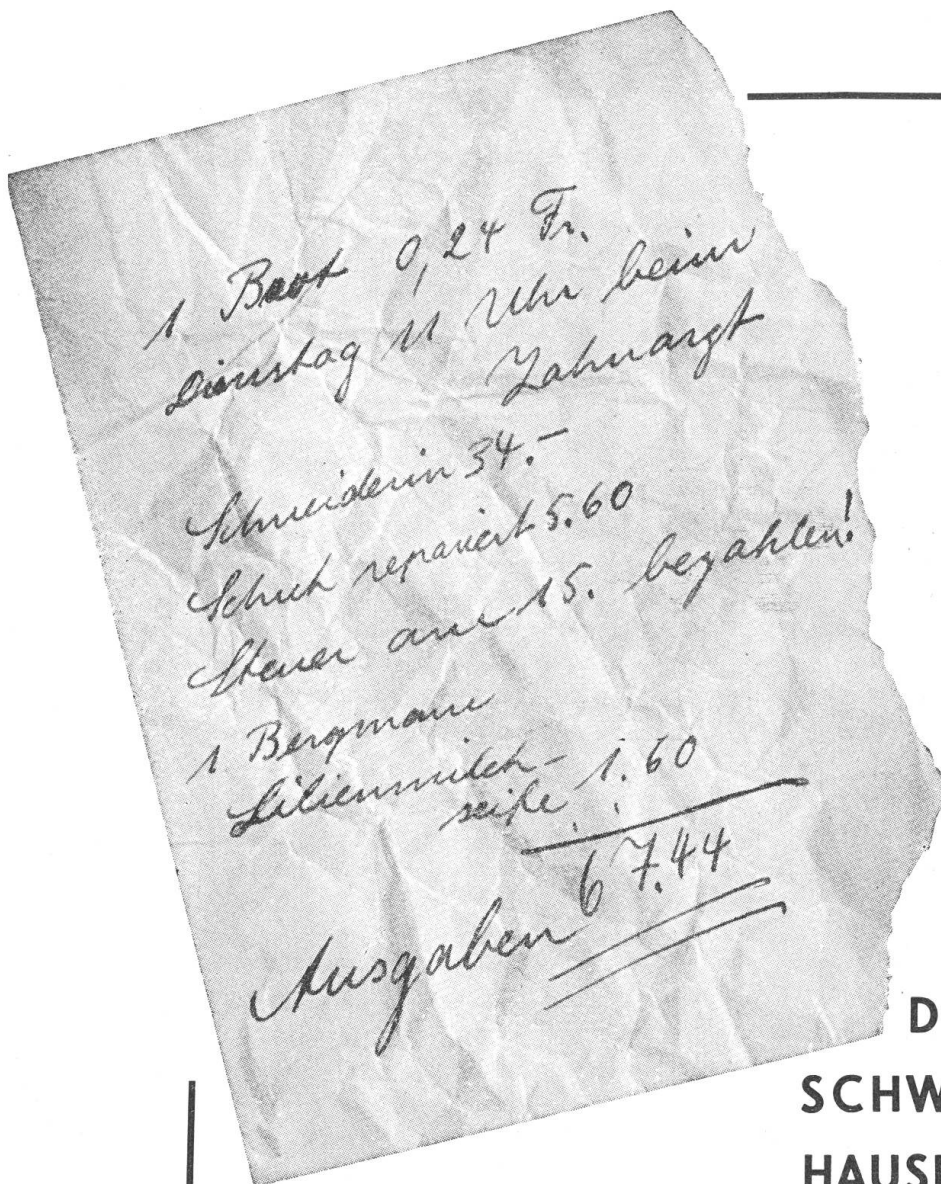 1 Brot 0,24 Fr.
Dienstag 11 Uhr beim
Zahnarzt
Schneiderin 34.–
Schuh repariert 5.60
Steuer am 15. bezahlen!
1 Bergmann
Lilienmilch-
seife 1.60
Ausgaben 67.44
D
SCHW
HAUSE